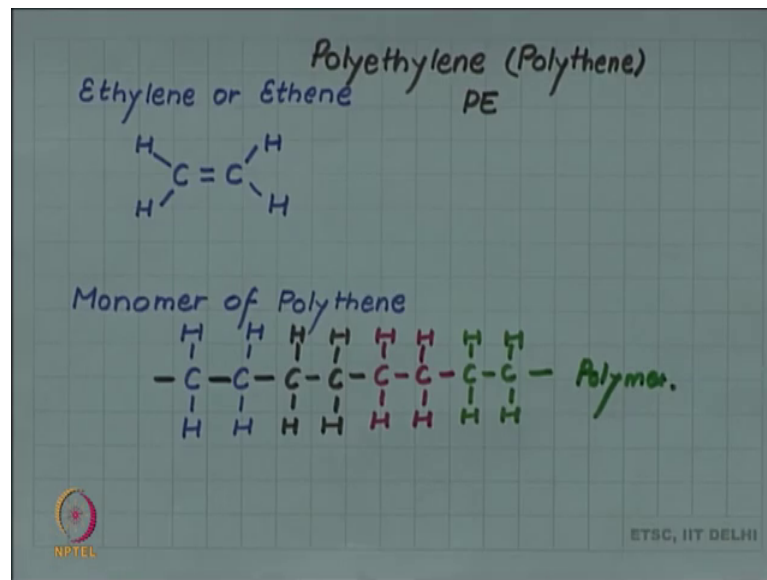 Polyethylene (Polythene)
PE
Ethylene or Ethene
H H
C = C
H H
Monomer of Polythene
H H H H H H H H
- C - C - C - C - C - C - C - C - Polymer.
H H H H H H H H
NPTEL
ETSC, IIT DELHI